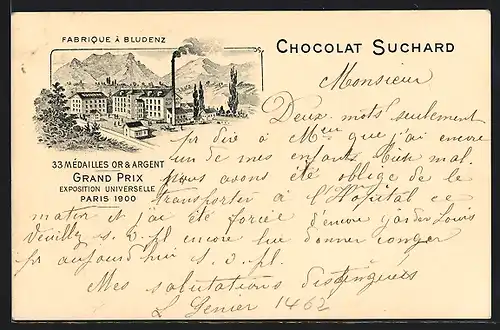 FABRIQUE À BLUDENZ
CHOCOLAT SUCHARD
33 MÉDAILLES OR & ARGENT
GRAND PRIX
EXPOSITION UNIVERSELLE
PARIS 1900
Monsieur
Deux mots seulement
pr dire à Meur que j'ai encore
un de mes enfants bien mal.
Nous avons été oblige de le
transporter à l'Hopital ce
matin et j'ai été forcée d'encore garder Louis
Veuilly s. v. pl. encore lui donner conger
pr aujourd'hui s. v. pl.
Mes salutations distinguées
L Genier 1462